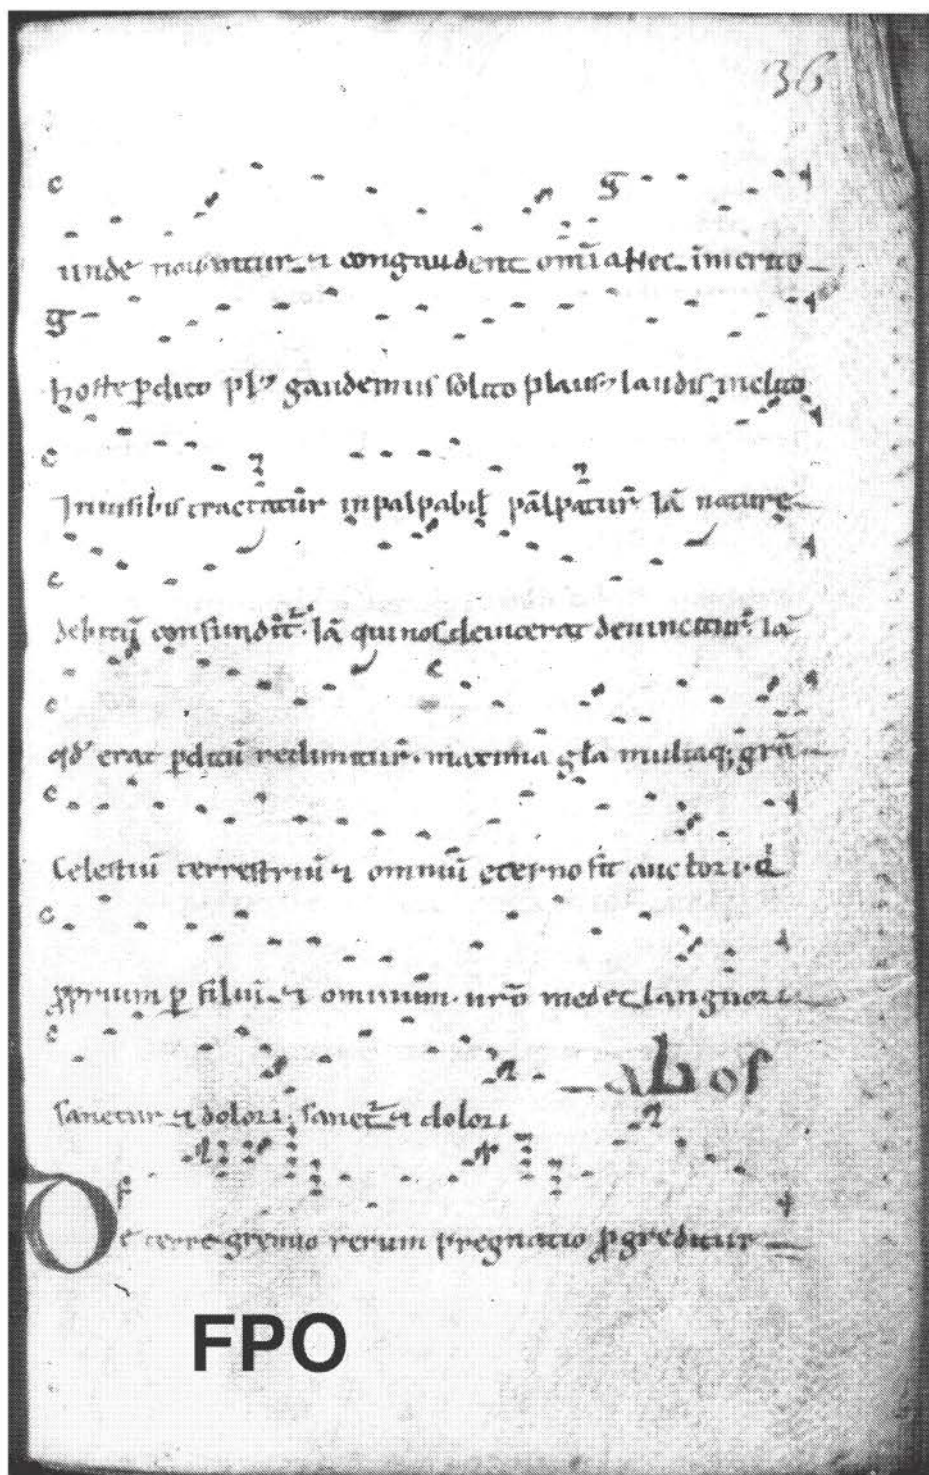 36
unde nouantur ⁊ congaudent om̄ia
hoste p̱dito gaudemus solito plaus laudis inclito
Inuisibis tractatur̄ inpalpabil̵ palpatur̄ Iā nature
debitū confundit̄. Iā qui nos deuicerat deuincitur̄. Iā
qd̄ erat p̱ditū redimitur̄. maxima gl̄a multaq; gr̄a
Celestiū terrestriū ⁊ omniū eterno sit auctori. q̇
p̱prium p̱ filiū. ⁊ omnium. nr̄o medet langnori.
sanctur ⁊ dolori. sanet̄ ⁊ dolori
De terre gremio rerum pregnatio p̱greditur
FPO